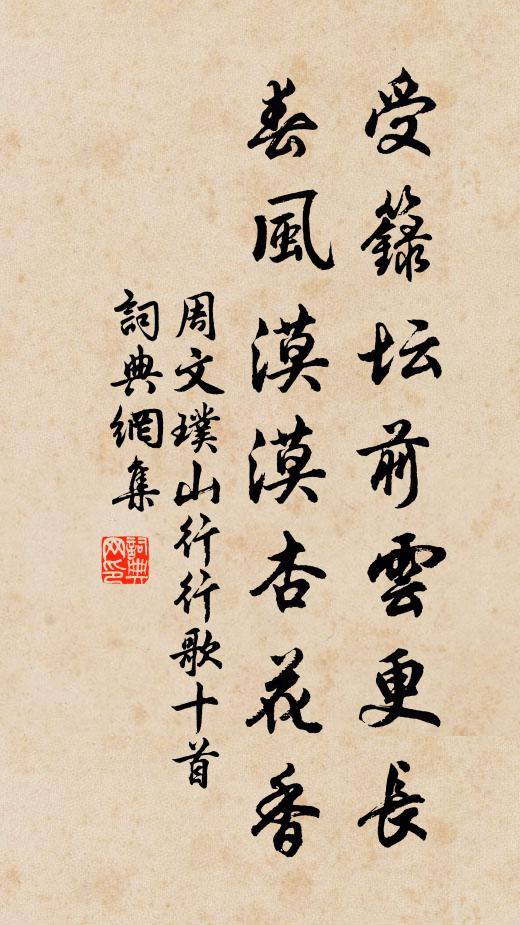 受籙坛前雲更長
春風漠漠杏花香
周文璞山行行歌十首
詞典網集
詞典网印